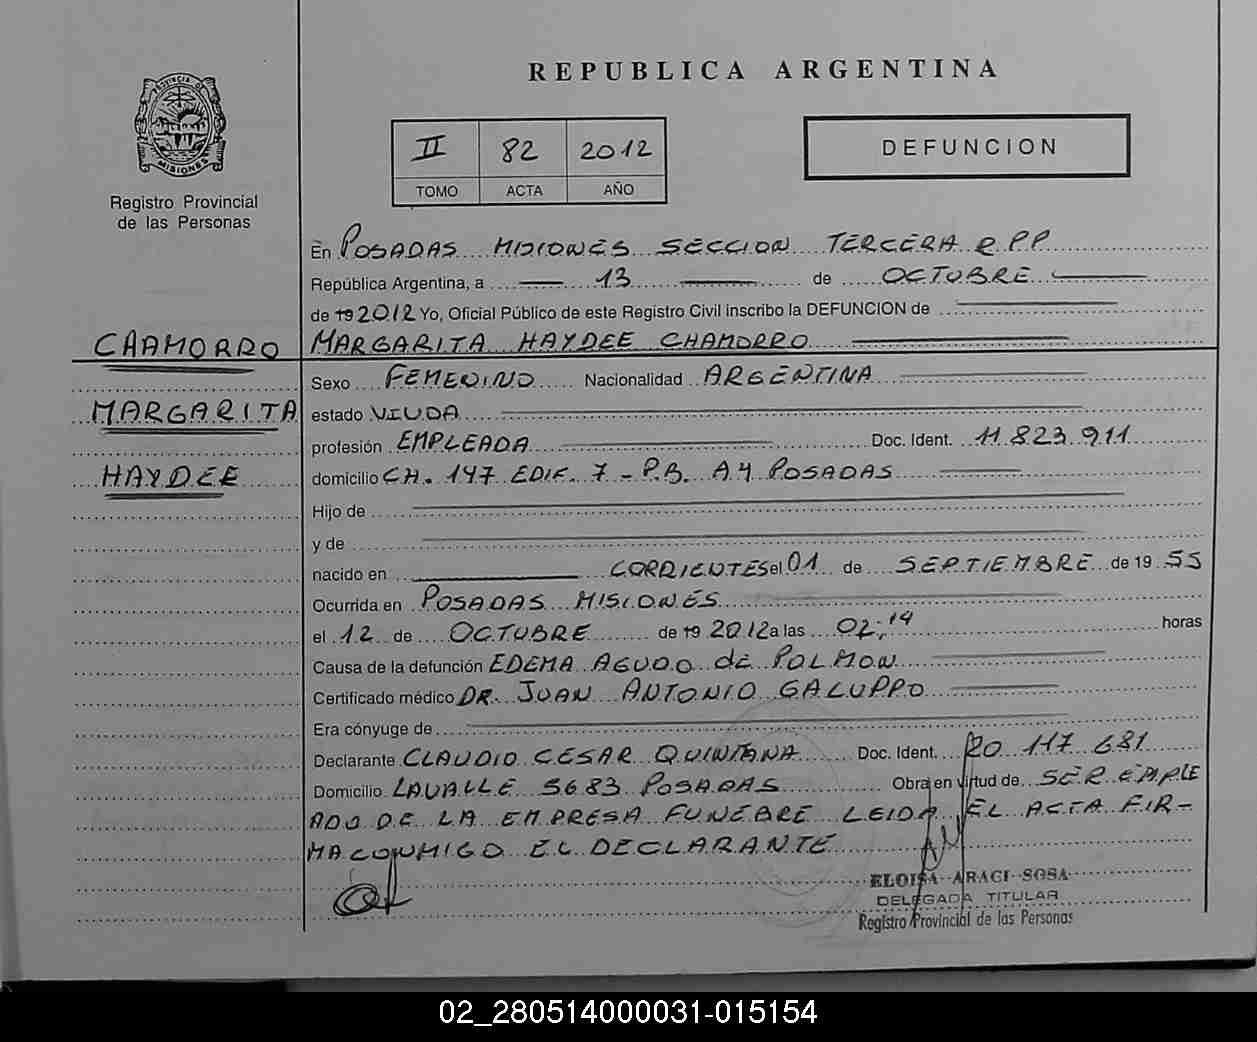 REPUBLICA ARGENTINA
PROVINCIA DE MISIONES
Registro Provincial
de las Personas
II 82 2012
TOMO ACTA AÑO
DEFUNCION
En POSADAS MISIONES SECCION TERCERA RPP
República Argentina, a 13 de OCTUBRE
de 19 2012 Yo, Oficial Público de este Registro Civil inscribo la DEFUNCION de
CHAMORRO
MARGARITA HAYDEE CHAMORRO
Sexo FEMENINO Nacionalidad ARGENTINA
MARGARITA
estado VIUDA
profesión EMPLEADA Doc. Ident. 11 823 911
HAYDEE
domicilio CH. 147 EDIF. 7 - P.B. A4 POSADAS
Hijo de
y de
nacido en CORRIENTES el 01 de SEPTIEMBRE de 19 55
Ocurrida en POSADAS MISIONES
el 12 de OCTUBRE de 19 2012 a las 02:14 horas
Causa de la defunción EDEMA AGUDO de PULMON
Certificado médico DR. JUAN ANTONIO GALUPPO
Era cónyuge de
Declarante CLAUDIO CESAR QUINTANA Doc. Ident. 20 117 681
Domicilio LAVALLE 5683 POSADAS Obra en virtud de SER EMPLE
ADO DE LA EMPRESA FUNEBRE LEIDA EL ACTA FIR-
MA CONMIGO EL DECLARANTE
ELOISA ARACI SOSA
DELEGADA TITULAR
Registro Provincial de las Personas
02_280514000031-015154